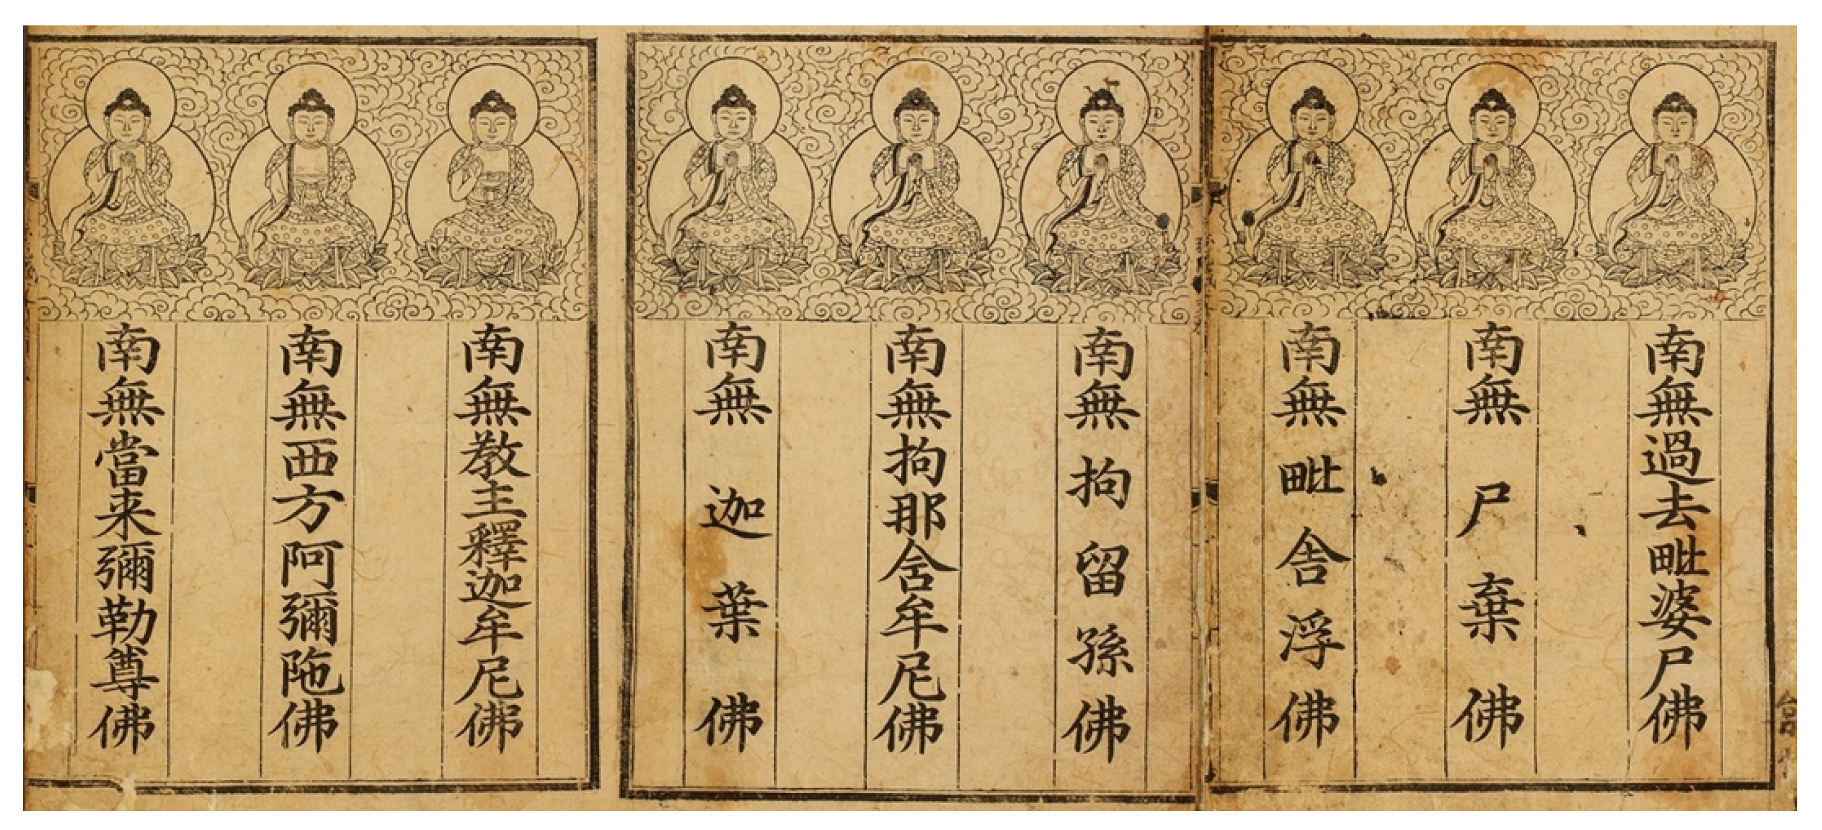 南無過去毗婆尸佛
南無尸棄佛
南無毗舎浮佛
南無拘留孫佛
南無拘那舍牟尼佛
南無迦葉佛
南無教主釋迦牟尼佛
南無西方阿彌陁佛
南無當来彌勒尊佛